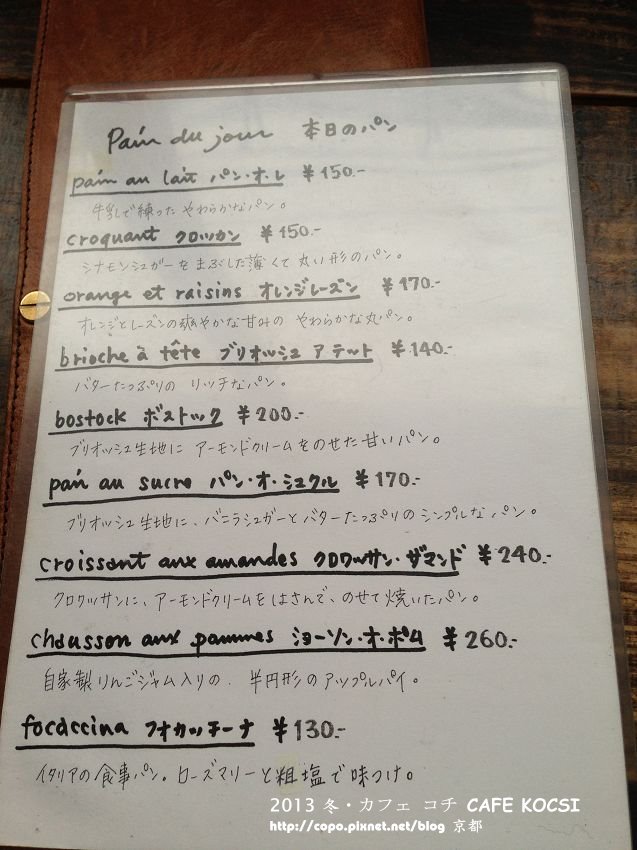 Pain du jour 本日のパン
pain au lait パン・オ・レ ¥150.-
牛乳で練った やわらかなパン。
croquant クロッカン ¥150.-
シナモンシュガーをまぶした薄くて丸い形のパン。
orange et raisins オレンジレーズン ¥170.-
オレンジとレーズンの爽やかな甘みの やわらかな丸パン。
brioche à tête ブリオッシュ アテット ¥140.-
バターたっぷりの リッチなパン。
bostock ボストック ¥200.-
ブリオッシュ生地に アーモンドクリームをのせた甘いパン。
pain au sucre パン・オ・シュクル ¥170.-
ブリオッシュ生地に、バニラシュガーとバターたっぷりのシンプルなパン。
croissant aux amandes クロワッサン・ザマンド ¥240.-
クロワッサンに、アーモンドクリームをはさんで、のせて焼いたパン。
chausson aux pommes ショーソン・オ・ポム ¥260.-
自家製りんごジャム入りの、半円形のアップルパイ。
focaccina フォカッチーナ ¥130.-
イタリアの食事パン。ローズマリーと粗塩で味つけ。
2013 冬・カフェ コチ CAFE KOCSI
http://copo.pixnet.net/blog 京都